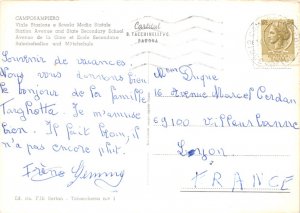 CAMPOSAMPIERO
Viale Stazione e Scuola Media Statale
Station Avenue and State Secondary School
Avenue de la Gare et Ecole Secondaire
Bahnhofsallee und Mittelschule
Cartital
B. TACCHINELLI V.C.
PADOVA
Souvenir de vacances.
Nous vous envoyons
le bonjour de la famille
Targhotta. Je m'amuse
bien. Il fait beau, il
n'a pas encore plut.
Mme Dugue
16 Avenue Marcel Cerdan
69100 Villeurbanne
Lyon
FRANCE